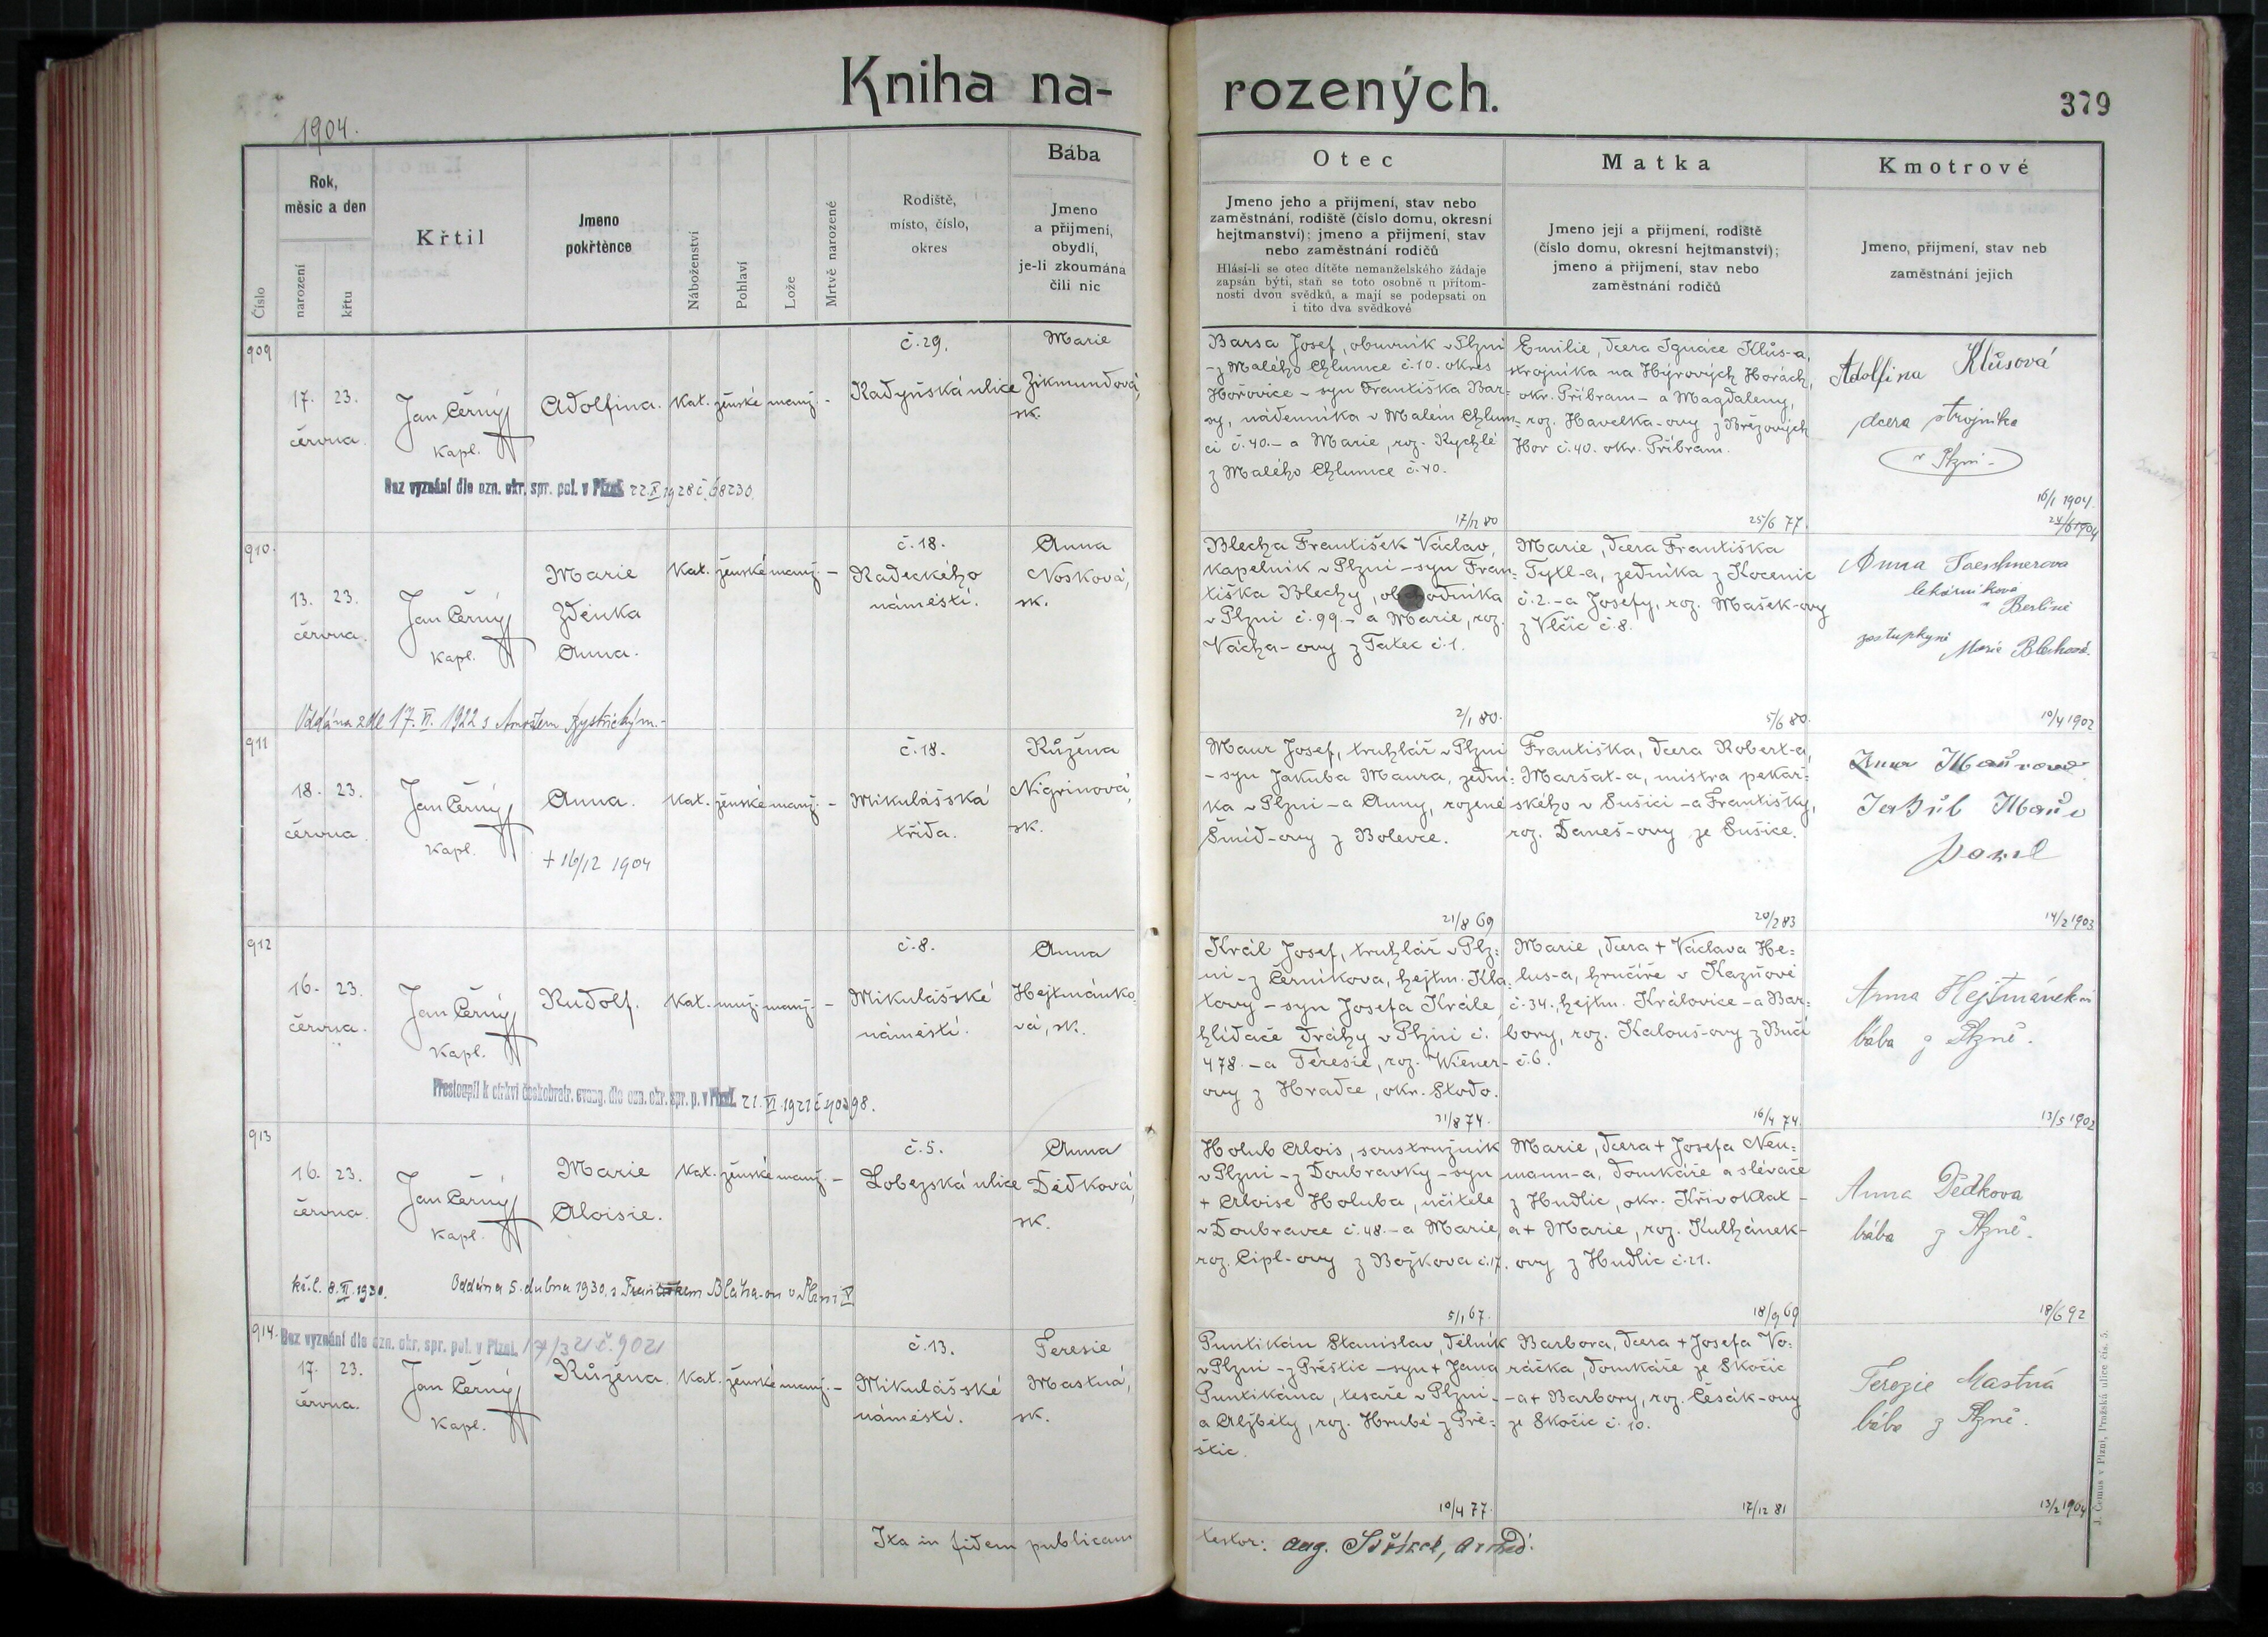 Kniha na-
rozených.
379
1904.
Číslo
Rok,
měsíc a den
narození
křtu
Křtil
Jmeno
pokřtěnce
Náboženství
Pohlaví
Lože
Mrtvě narozené
Rodiště,
místo, číslo,
okres
Bába
Jmeno
a přijmení,
obydlí,
je-li zkoumána
čili nic
Otec
Jmeno jeho a přijmení, stav nebo
zaměstnání, rodiště (číslo domu, okresní
hejtmanství); jmeno a přijmení, stav
nebo zaměstnání rodičů
Hlásí-li se otec dítěte nemanželského žádaje
zapsán býti, staň se toto osobně u přítom-
nosti dvou svědků, a mají se podepsati on
i tito dva svědkové
Matka
Jmeno její a přijmení, rodiště
(číslo domu, okresní hejtmanství);
jmeno a přijmení, stav nebo
zaměstnání rodičů
Kmotrové
Jmeno, přijmení, stav neb
zaměstnání jejich
909
17. 23.
června.
Jan Černý
Kapl.
Adolfina.
Kat. ženské manž. -
č. 29.
Radyňská ulice
Marie
Zikmundová,
sk.
Barsa Josef, obuvník v Plzni
- z Malého Chlumce č. 10. okres
Hořovice - syn Františka Bar=
sy, nádenníka v Malém Chlum=
ci č. 40. - a Marie, roz. Rychlé
z Malého Chlumce č. 40.
17/12 80
Emilie, dcera Ignáce Klůs-a,
strojníka na Hýrových Horách,
okr. Příbram - a Magdaleny,
roz. Havelka-ovy z Březových
Hor č. 40. okr. Příbram.
25/6 77.
Adolfina Klůsová
dcera strojníka
v Plzni -
16/1 1904
24/6 1904
Bez vyznání dle ozn. okr. spr. pol. v Plzni 22.X.1928 č. 68230.
910.
13. 23.
června.
Jan Černý
Kapl.
Marie
Zdenka
Anna.
Kat. ženské manž. -
č. 18.
Radeckého
náměstí.
Anna
Nosková,
sk.
Blecha František Václav,
kapelník v Plzni - syn Fran=
tiška Blechy, obchodníka
v Plzni č. 99. - a Marie, roz.
Vácha-ovy z Tatec č. 1.
2/1 80.
Marie, dcera Františka
Tytl-a, zedníka z Kocenic
č. 2. - a Josefy, roz. Mašek-ovy
z Vlčic č. 8.
5/6 80.
Anna
lékárníkova
Berlíně
zástupkyně
Marie Blechová.
10/4 1902
Oddána zde 17. VI. 1922 s Arnoštem Bystřickým. -
911
18. 23.
června.
Jan Černý
Kapl.
Anna.
+ 16/12 1904
Kat. ženské manž. -
č. 18.
Mikulášská
třída.
Růžena
Nigrinová,
sk.
Maur Josef, truhlář v Plzni
- syn Jakuba Maura, zední=
ka v Plzni - a Anny, rozené
Šmíd-ovy z Bolevce.
21/8 69
Františka, dcera Robert-a,
Maršat-a, mistra pekař=
ského v Sušici - a Františky,
roz. Daneš-ovy ze Sušice.
20/2 83
Jakub
14/2 1903
912
16. 23.
června.
Jan Černý
Kapl.
Rudolf.
Kat. muž. manž. -
č. 8.
Mikulášské
náměstí.
Anna
Hejtmánko=
vá, sk.
Král Josef, truhlář v Plz=
ni - z Černíkova, hejtm. Kla=
tovy - syn Josefa Krále,
hlídače dráhy v Plzni č.
478. - a Teresie, roz. Wiener-
ovy z Hradce, okr. Stodo.
31/8 74.
Marie, dcera + Václava He=
lus-a, hrnčíře v Kaznově
č. 34. hejtm. Královice - a Bar=
bory, roz. Kalouš-ovy z Bučí
č. 6.
16/4 74.
Anna Hejtmánek
bába z Plzně.
13/5 1902
Přestoupil k církvi českobratr. evang. dle ozn. okr. spr. p. v Plzni. 21. VI. 1921 č. 40398.
913
16. 23.
června.
Jan Černý
Kapl.
Marie
Aloisie.
Kat. ženské manž. -
č. 5.
Lobezská ulice
Anna
Dědková,
sk.
Holub Alois, soustružník
v Plzni - z Doubravky - syn
+ Aloise Holuba, učitele
v Doubravce č. 48. - a Marie,
roz. Cipl-ovy z Božkova č. 17.
5/1 67.
Marie, dcera + Josefa Neu=
mann-a, domkáře a slévače
z Hudlic, okr. Křivoklat -
a + Marie, roz. Kulhánek-
ovy z Hudlic č. 21.
18/9 69
Anna Dědkova
bába z Plzně.
18/6 92
kř. l. 8. II. 1930. Oddána 5. dubna 1930. s Františkem Bláha-ou v Plzni V
914.
Bez vyznání dle ozn. okr. spr. pol. v Plzni. 17/3 21 č. 9021
17. 23.
června.
Jan Černý
Kapl.
Růžena.
Kat. ženské manž. -
č. 13.
Mikulášské
náměstí.
Teresie
Mastná,
sk.
Puntikán Stanislav, dělník
v Plzni - z Přeštic - syn + Jana
Puntikána, tesaře v Plzni -
a Alžběty, roz. Hrubé z Pře=
štic.
10/4 77.
Barbora, dcera + Josefa Vo=
ráčka, domkáře ze Skočic
- a + Barbory, roz. Česák-ovy
ze Skočic č. 10.
17/12 81
Terezie Mastná
bába z Plzně.
13/2 1904
Ita in fidem publicam
testor:
J. Čemus v Plzni, Pražská ulice čís. 5.